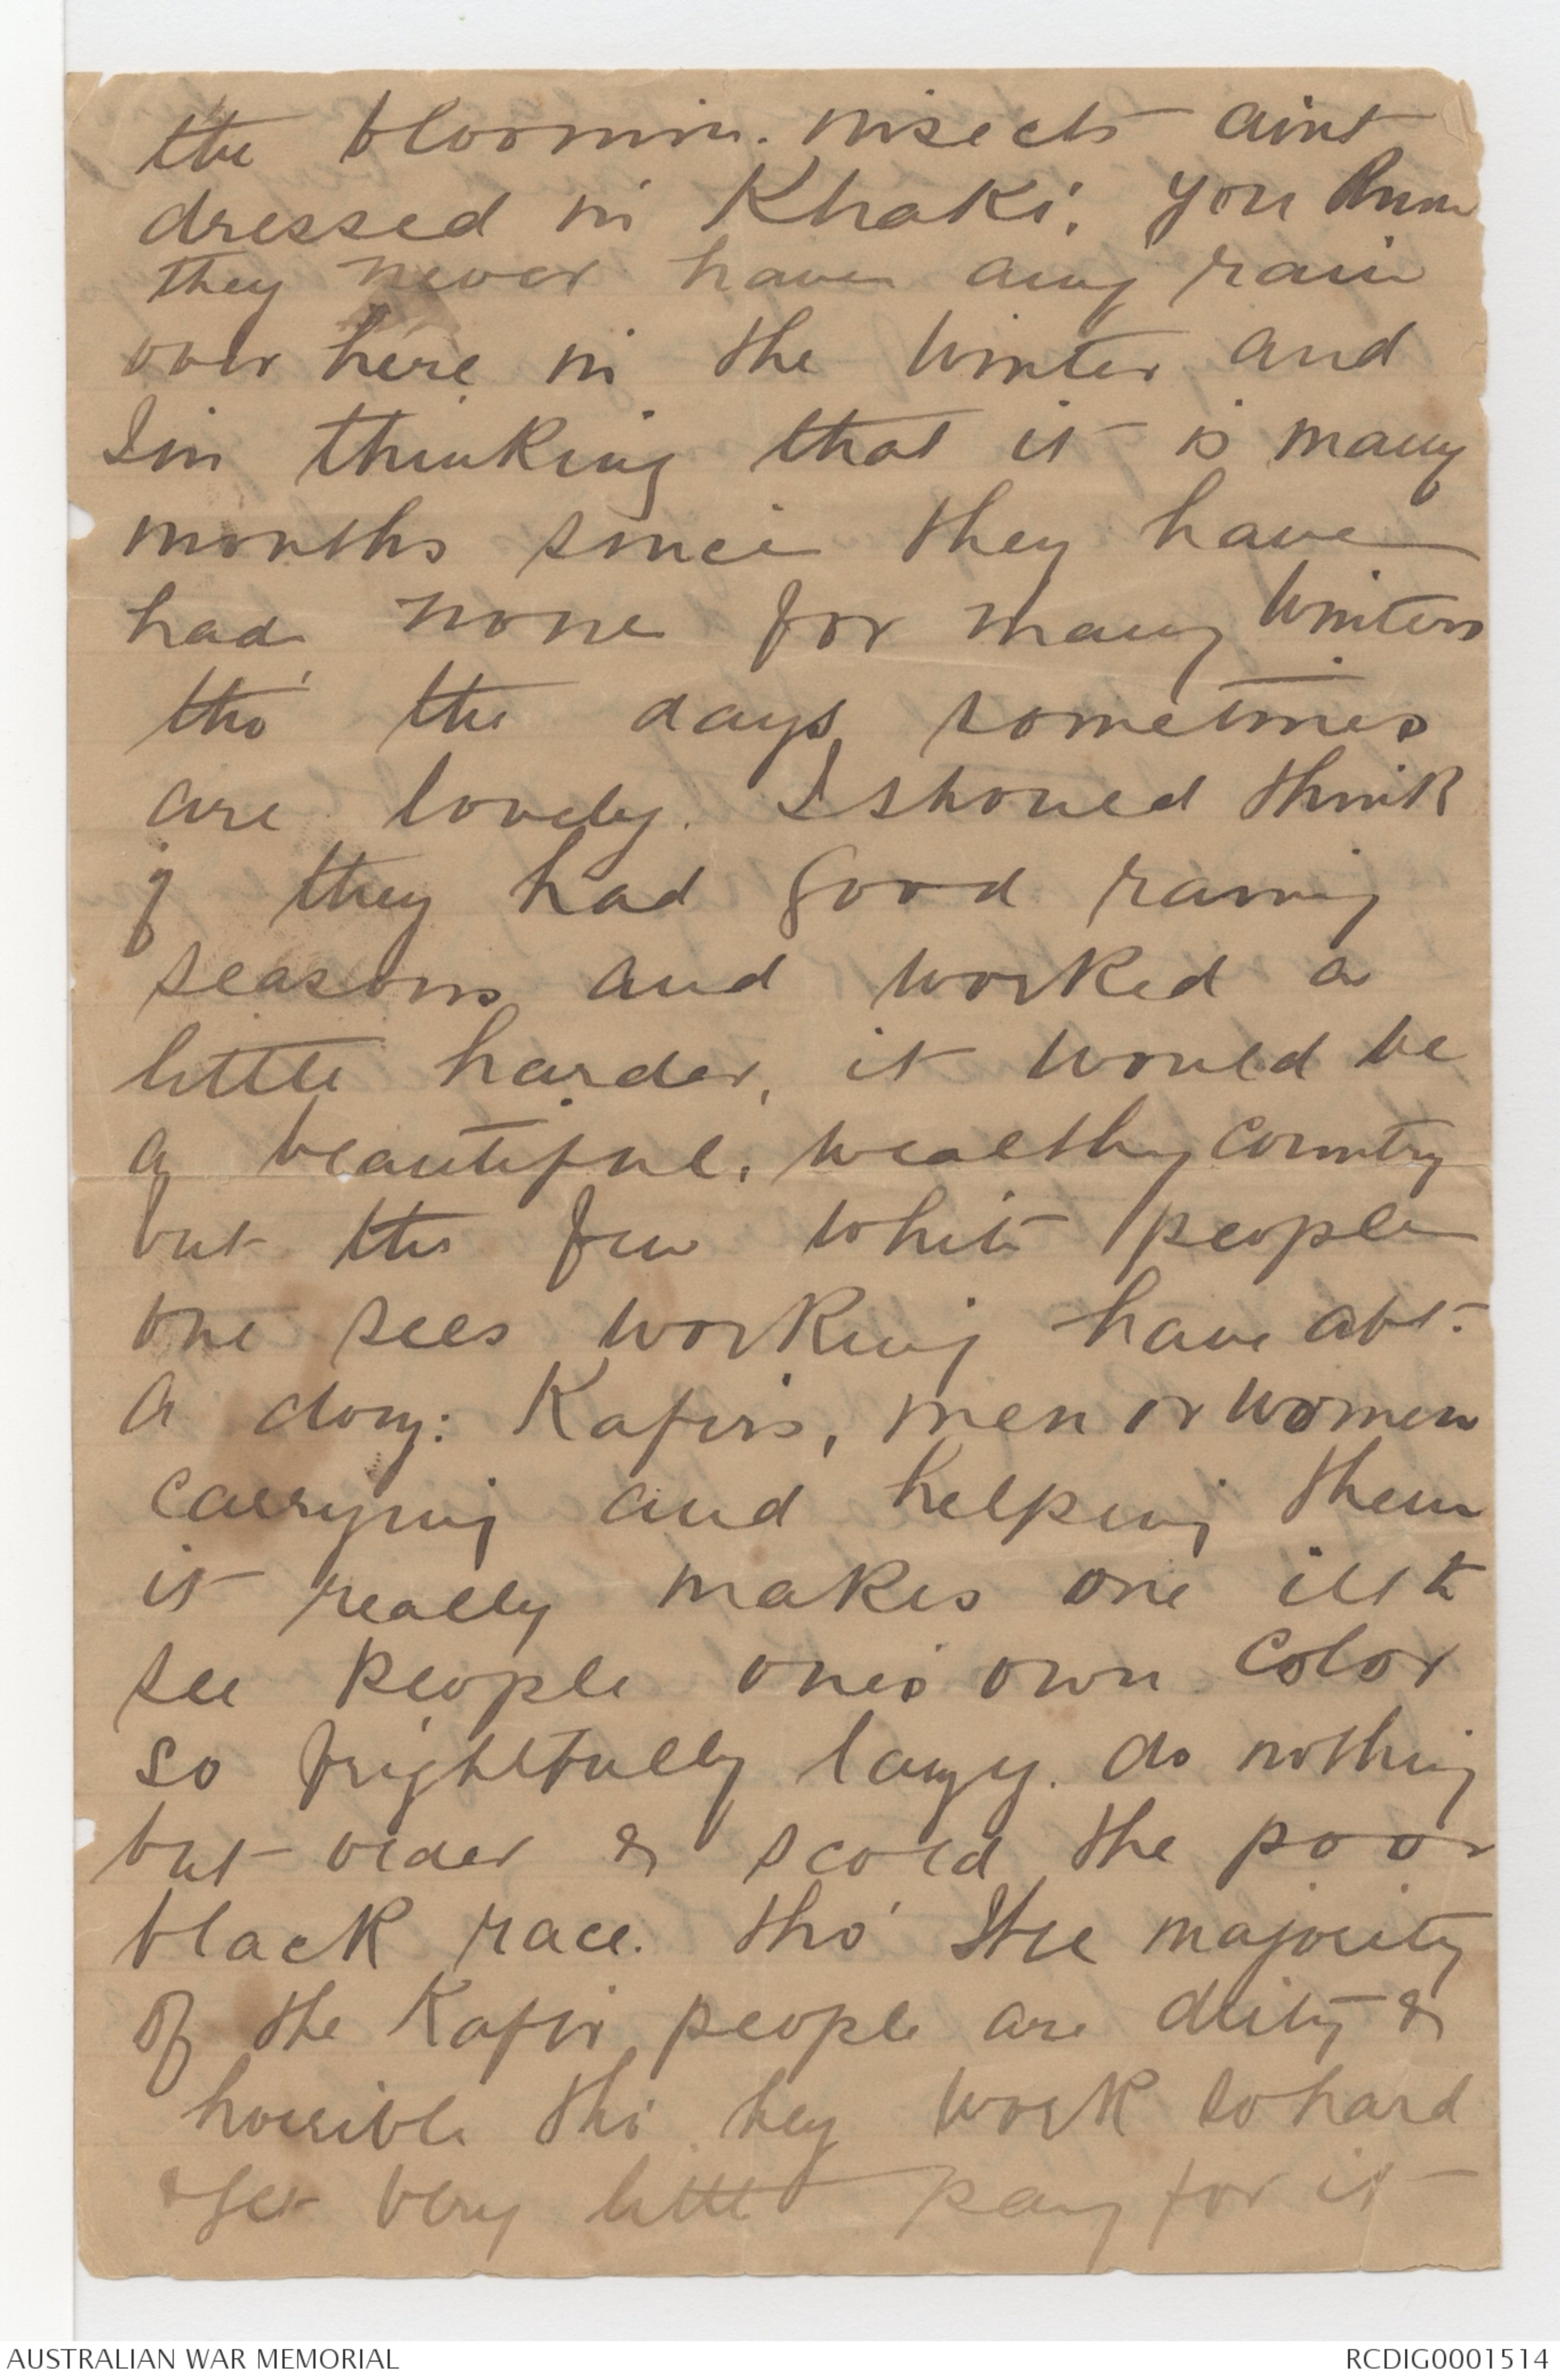 the bloomin. insects aint
dressed in Khaki. you know
they never have any rain
over here in the Winter and
I'm thinking that it is many
months since they have
had none for many Winters
tho' the days sometimes
are lovely. I should think
if they had good rainy
seasons and worked a
little harder, it would be
a beautiful, wealthy country
but the few white people
one sees working have abt.
a doz: Kafirs, men or women
carrying and helping them
it really makes one ill to
see people one's own color
so frightfully lazy. do nothing
but order & scold the poor
black race. tho' the majority
of the Kafir people are dirty &
horrible tho' hey work so hard
& get very little pay for it
AUSTRALIAN WAR MEMORIAL
RCDIG0001514